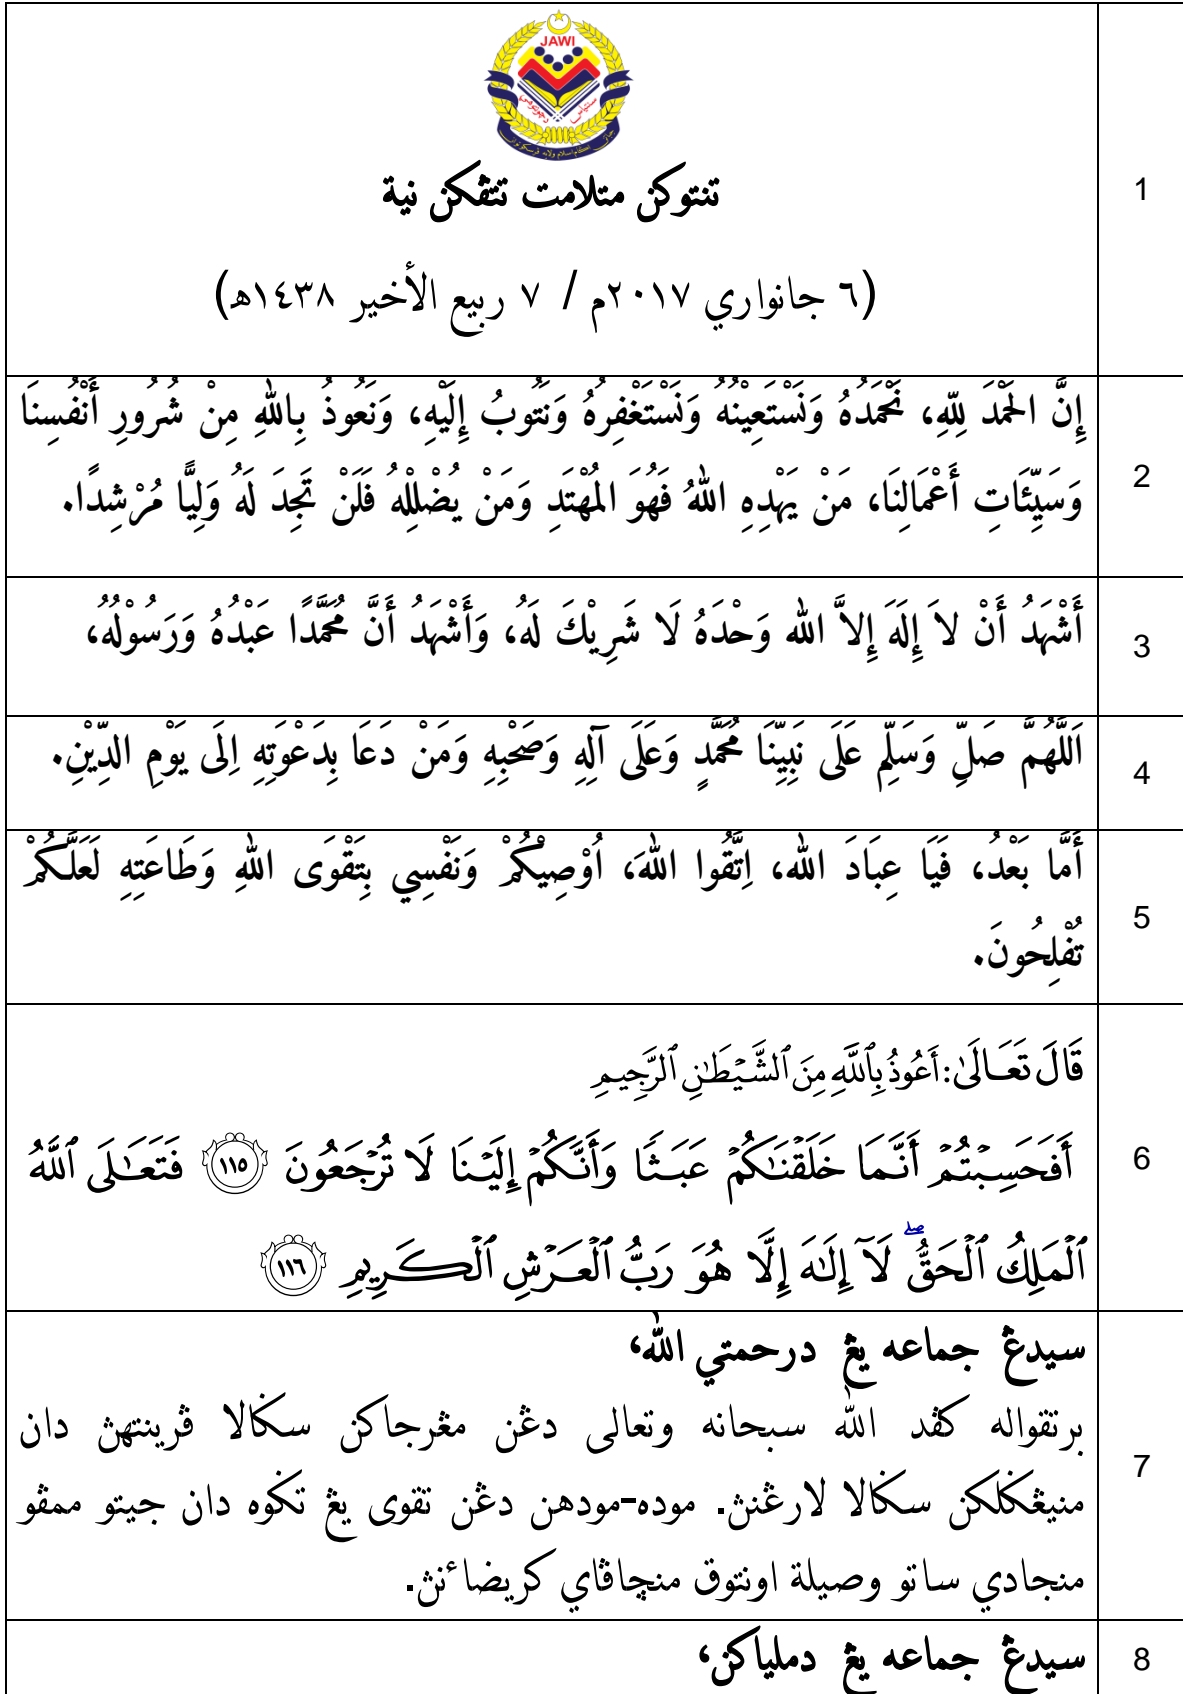 JAWI
تنتوكن متلامت تتڤكن نية
1
(٦ جانواري ٢٠١٧م / ٧ ربيع الأخير ١٤٣٨ه)
إِنَّ الحَمْدَ لِلّهِ، نَحْمَدُهُ وَنَسْتَعِيْنُهُ وَنَسْتَغْفِرُهُ وَنَتُوبُ إِلَيْهِ، وَنَعُوذُ بِاللهِ مِنْ شُرُورِ أَنْفُسِنَا
2
وَسَيِّئَاتِ أَعْمَالِنَا، مَنْ يَهْدِهِ اللهُ فَهُوَ المُهْتَدِ وَمَنْ يُضْلِلْهُ فَلَنْ تَجِدَ لَهُ وَلِيًّا مُرْشِدًا.
أَشْهَدُ أَنْ لاَ إِلَهَ إِلاَّ الله وَحْدَهُ لَا شَرِيْكَ لَهُ، وَأَشْهَدُ أَنَّ مُحَمَّدًا عَبْدُهُ وَرَسُوْلُهُ،
3
اَللَّهُمَّ صَلِّ وَسَلِّم عَلَى نَبِيِّنَا مُحَمَّدٍ وَعَلَى آلِهِ وَصَحْبِهِ وَمَنْ دَعَا بِدَعْوَتِهِ اِلَى يَوْمِ الدِّيْنِ.
4
أَمَّا بَعْدُ، فَيَا عِبَادَ الله، اِتَّقُوا اللهَ، اُوْصِيْكُمْ وَنَفْسِي بِتَقْوَى اللهِ وَطَاعَتِهِ لَعَلَّكُمْ
5
تُفْلِحُونَ.
قَالَ تَعَالَىٰ: أَعُوذُ بِٱللَّهِ مِنَ ٱلشَّيْطَٰنِ ٱلرَّجِيمِ
أَفَحَسِبْتُمْ أَنَّمَا خَلَقْنَٰكُمْ عَبَثًا وَأَنَّكُمْ إِلَيْنَا لَا تُرْجَعُونَ ١١٥ فَتَعَٰلَى ٱللَّهُ
6
ٱلْمَلِكُ ٱلْحَقُّ ۖ لَآ إِلَٰهَ إِلَّا هُوَ رَبُّ ٱلْعَرْشِ ٱلْكَرِيمِ ١١٦
سيدڠ جماعه يڠ درحمتي الله،
برتقواله كڤد الله سبحانه وتعالى دڠن مڠرجاكن سݢالا ڤرينتهڽ دان
7
منيڠݢلكن سݢالا لارڠنڽ. موده-مودهن دڠن تقوى يڠ تݢوه دان جيتو ممڤو
منجادي ساتو وصيلة اونتوق منچاڤاي كريضاءنڽ.
سيدڠ جماعه يڠ دملياكن،
8